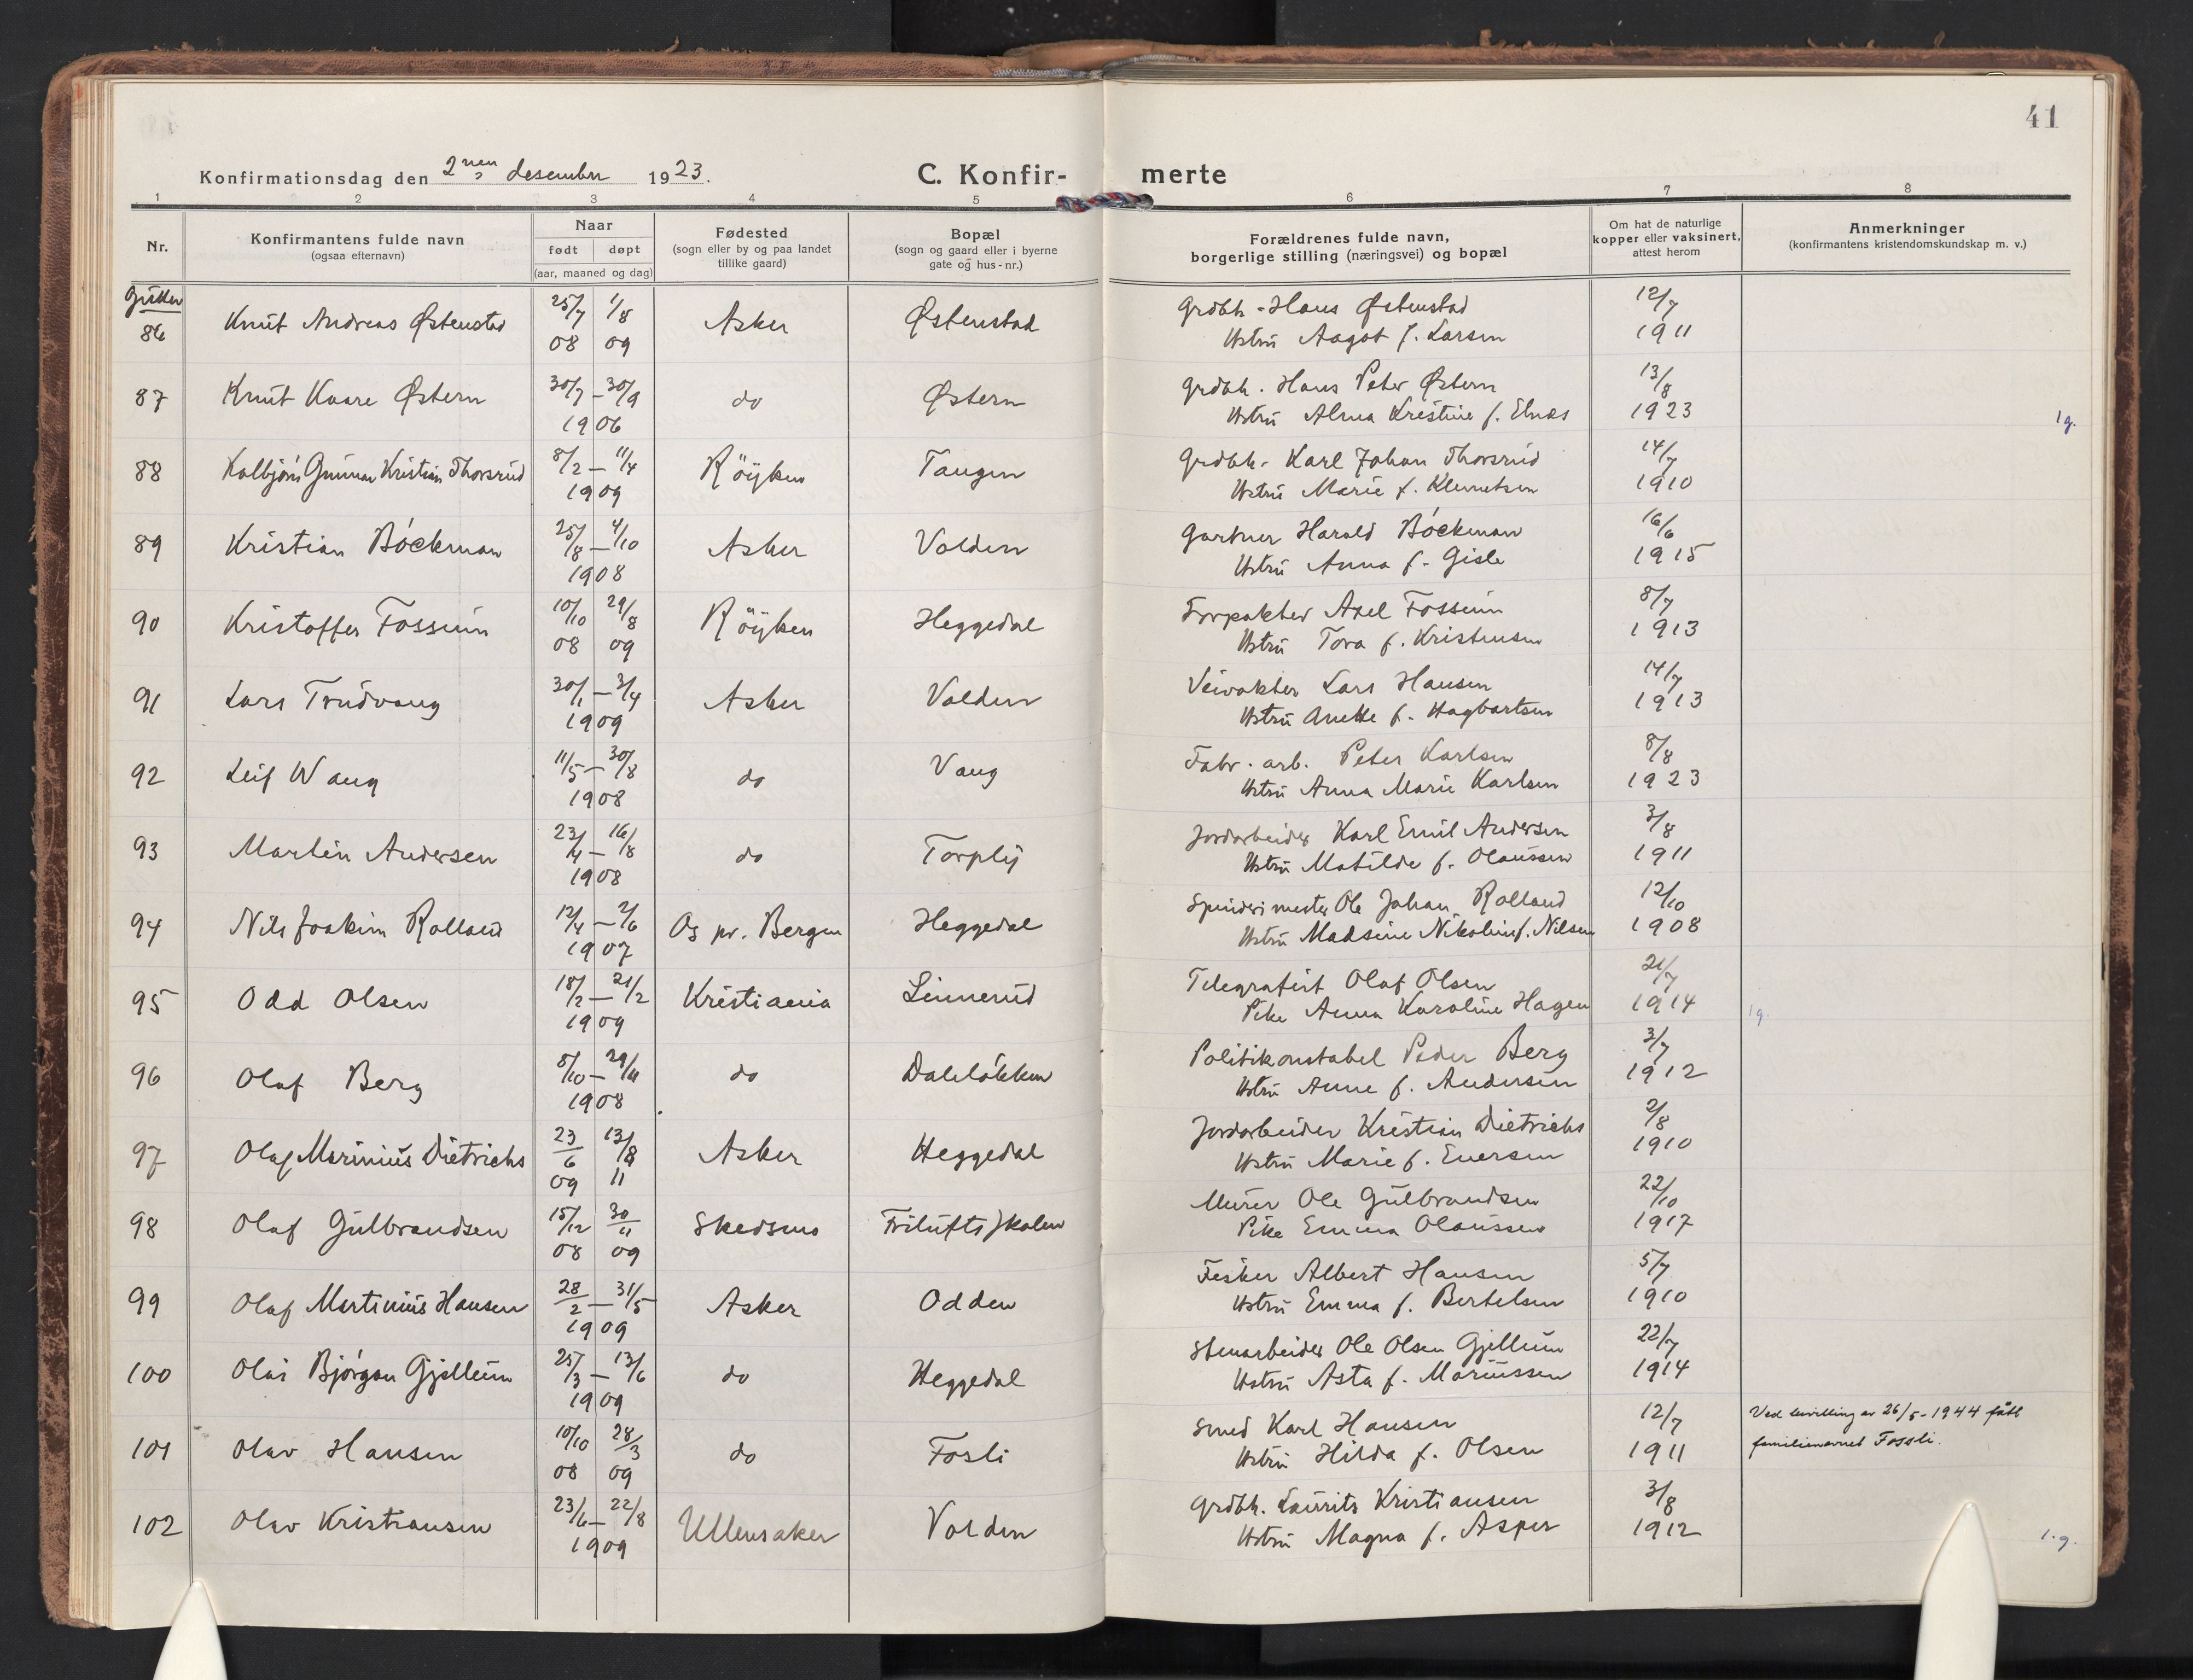 41
Konfirmationsdag den 2nen desember 1923.
C. Konfir-merte
1 2 3 4 5 6 7 8
Nr.
Konfirmantens fulde navn
(ogsaa efternavn)
Naar
født døpt
(aar, maaned og dag)
Fødested
(sogn eller by og paa landet
tillike gaard)
Bopæl
(sogn og gaard eller i byerne
gate og hus-nr.)
Forældrenes fulde navn,
borgerlige stilling (næringsvei) og bopæl
Om hat de naturlige
kopper eller vaksinert,
attest herom
Anmerkninger
(konfirmantens kristendomskundskap m. v.)
Gutter
86 Knut Andreas Østenstad 25/7 08 1/8 09 Asker Østenstad Grdbh. Hans Østenstad 12/7
Hstru Aagot f. Larsen 1911
87 Knut Kaare Østern 30/7 – 30/9 1906 do Østern Grdbh. Hans Peter Østern 13/8
Hstru Alma Kristine f. Elnes 1923 1g.
88 Kolbjörn Gunnar Kristian Thorsrud 8/2 – 11/4 1909 Röyken Tangen Grdbh. Karl Johan Thorsrud 14/7
Hstru Marie f. Klemetsen 1910
89 Kristian Böckman 25/8 – 4/10 1908 Asker Volden Gartner Harald Böckman 16/6
Hstru Anna f. Gisle 1915
90 Kristoffer Fossum 10/10 08 29/8 09 Röyken Heggedal Forpakter Axel Fossum 8/7
Hstru Tora f. Kristensen 1913
91 Lars Trudvang 30/1 – 3/4 1909 Asker Volden Veivokter Lars Hansen 14/7
Hstru Anette f. Hagbartsen 1913
92 Leif Wang 11/5 – 30/8 1908 do Vang Fabr. arb. Peter Karlsen 8/8
Hstru Anna Marie Karlsen 1923
93 Martin Andersen 23/4 – 16/8 1908 do Torply Jordarbeider Karl Emil Andersen 3/8
Hstru Matilde f. Olaussen 1911
94 Nils Joakim Rolland 12/4 – 2/6 1907 Os pr. Bergen Heggedal Spinderimester Ole Johan Rolland 12/10
Hstru Madsine Nikoline f. Nilsen 1908
95 Odd Olsen 18/2 – 21/2 1909 Kristiania Linnerud Telegrafist Olaf Olsen 21/7
Pike Anna Karoline Hagen 1914 1g.
96 Olaf Berg 8/10 – 29/11 1908 do Dalelökken Politikonstabel Peder Berg 3/7
Hstru Anne f. Andersen 1912
97 Olaf Marinius Dietrichs 23/6 09 13/8 11 Asker Heggedal Jordarbeider Kristian Dietrichs 2/8
Hstru Marie f. Evensen 1910
98 Olaf Gulbrandsen 15/12 08 30/11 09 Skedsmo Friluftsskolen Murer Ole Gulbrandsen 22/10
Pike Emma Olaussen 1917
99 Olaf Martinius Hansen 28/2 – 31/5 1909 Asker Odden Fisker Albert Hansen 5/7
Hstru Emma f. Bertelsen 1910
100 Olai Bjórgan Gjellum 25/3 – 13/6 1909 do Heggedal Stenarbeider Ole Olsen Gjellum 22/7
Hstru Asta f. Mariussen 1914
101 Olav Hansen 10/10 08 28/3 09 do Fosli Smed Karl Hansen 12/7 Ved bevilling av 26/5-1944 fått
Hstru Hilda f. Olsen 1911 familienavnet Fossli.
102 Olav Kristiansen 23/6 – 22/8 1909 Ullensaker Volden Grdbh. Laurits Kristiansen 3/8
Hstru Magna f. Asper 1912 1.g.